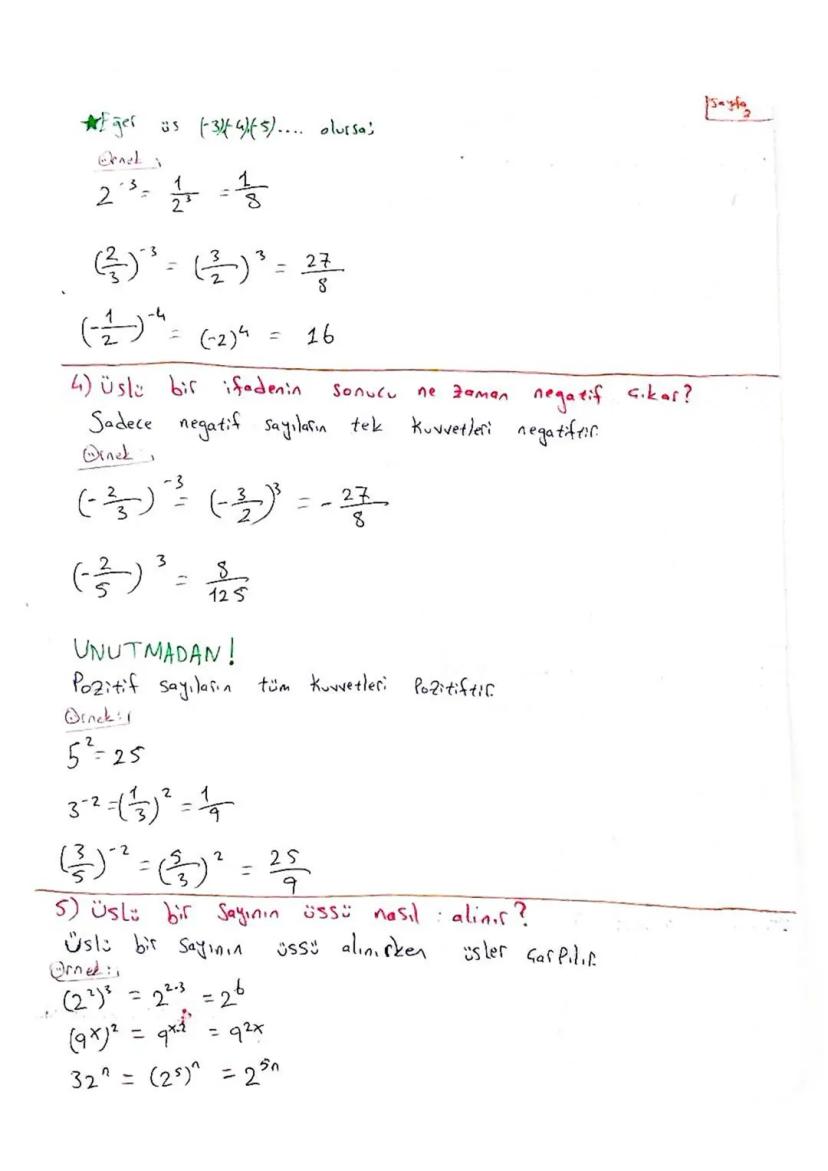 Sayfa 2
★Eğer üs (-3)(-4)(-5).... olursa;
Örnek:
2⁻³ = 1/2³ = 1/8
(2/3)⁻³ = (3/2)³ = 27/8
(-1/2)⁻⁴ = (-2)⁴ = 16
4) Üslü bir ifadenin sonucu ne zaman negatif çıkar?
Sadece negatif sayıların tek kuvvetleri negatiftir.
Örnek:
(-2/3)⁻³ = (-3/2)³ = -27/8
(-2/5)³ = 8/125
UNUTMADAN!
Pozitif sayıların tüm kuvvetleri Pozitiftir.
Örnek:
5² = 25
3⁻² = (1/3)² = 1/9
(3/5)⁻² = (5/3)² = 25/9
5) Üslü bir Sayının üssü nasıl : alinır?
Üslü bir Sayının üssü alınırken üsler Çarpılır.
Örnek:
(2²)³ = 2²·³ = 2⁶
(9ˣ)² = 9ˣ·² = 9²ˣ
32ⁿ = (2⁵)ⁿ = 2⁵ⁿ